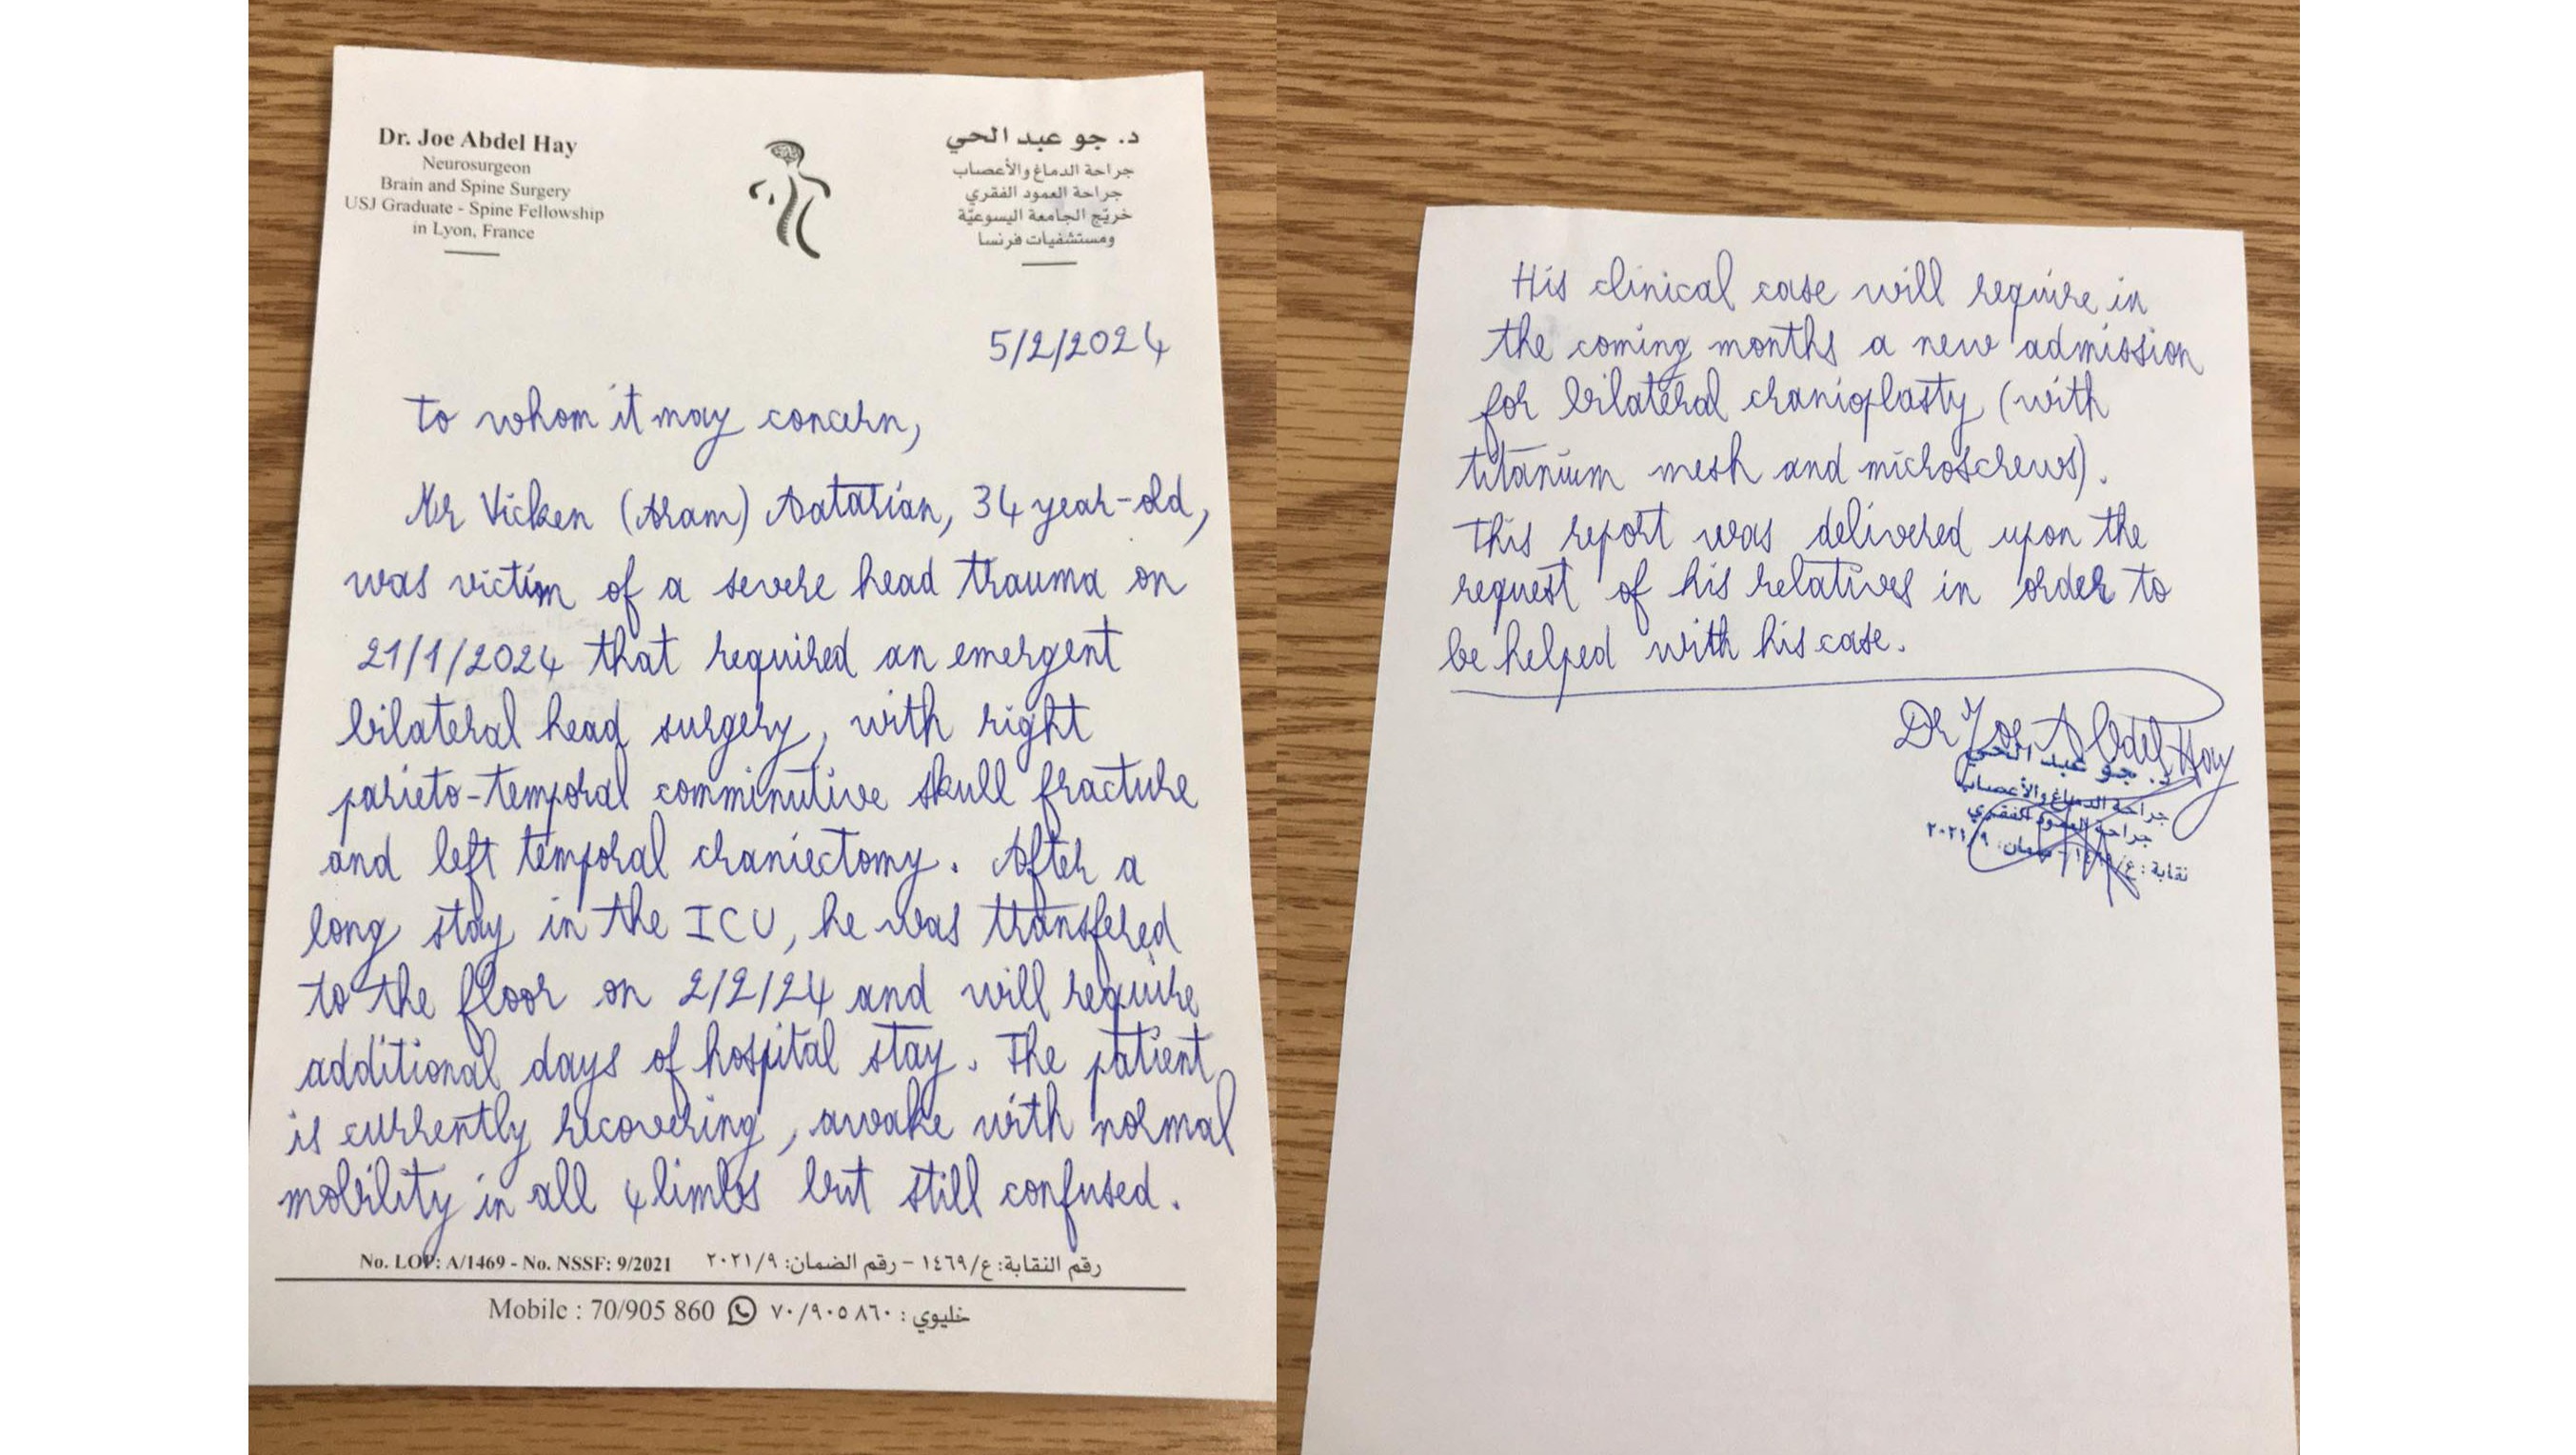 Dr. Joe Abdel Hay
Neurosurgeon
Brain and Spine Surgery
USJ Graduate - Spine Fellowship
in Lyon, France
د. جو عبد الحي
جراحة الدماغ والأعصاب
جراحة العمود الفقري
خريّج الجامعة اليسوعيّة
ومستشفيات فرنسا
5/2/2024
to whom it may concern,
Mr Vicken (Aram) Aatarian, 34 year-old,
was victim of a severe head trauma on
21/1/2024 that required an emergent
bilateral head surgery, with right
parieto-temporal comminutive skull fracture
and left temporal craniectomy. After a
long stay in the ICU, he was transfered
to the floor on 2/2/24 and will require
additional days of hospital stay. The patient
is currently recovering, awake with normal
mobility in all 4 limbs but still confused.
No. LOP: A/1469 - No. NSSF: 9/2021 رقم النقابة: ع/١٤٦٩ - رقم الضمان: ٢٠٢١/٩
Mobile : 70/905 860 خليوي : ٧٠/٩٠٥ ٨٦٠
His clinical case will require in
the coming months a new admission
for bilateral cranioplasty (with
titanium mesh and microscrews).
This report was delivered upon the
request of his relatives in order to
be helped with his case.
Dr Joe Abdel Hay
د. جو عبد الحي
جراحة الدماغ والأعصاب
جراحة العمود الفقري
نقابة : ع/١٤٦٩ - ضمان: ٢٠٢١/٩